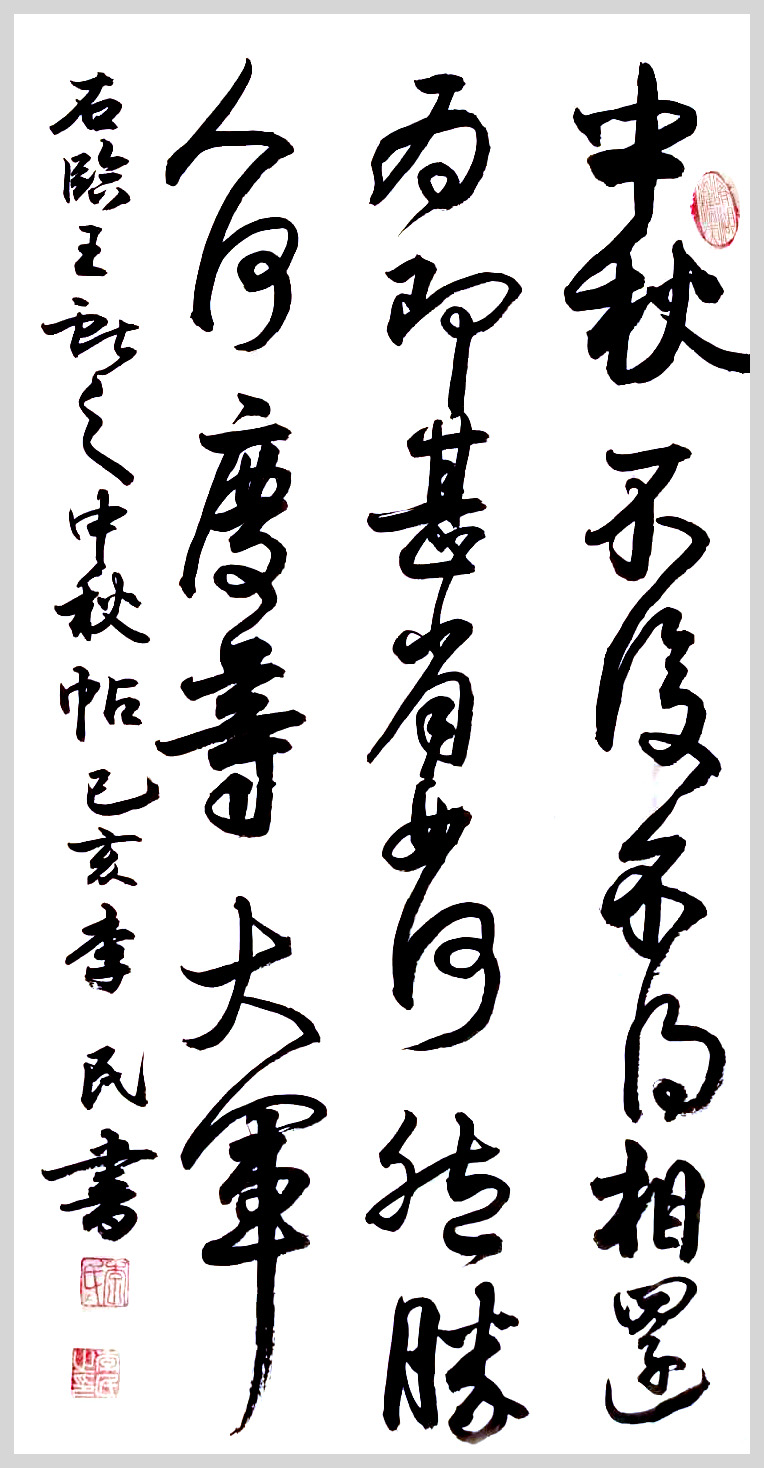 中秋不復不得相還
為即甚省如何然勝
人何慶等大軍
右臨王獻之中秋帖己亥李民書